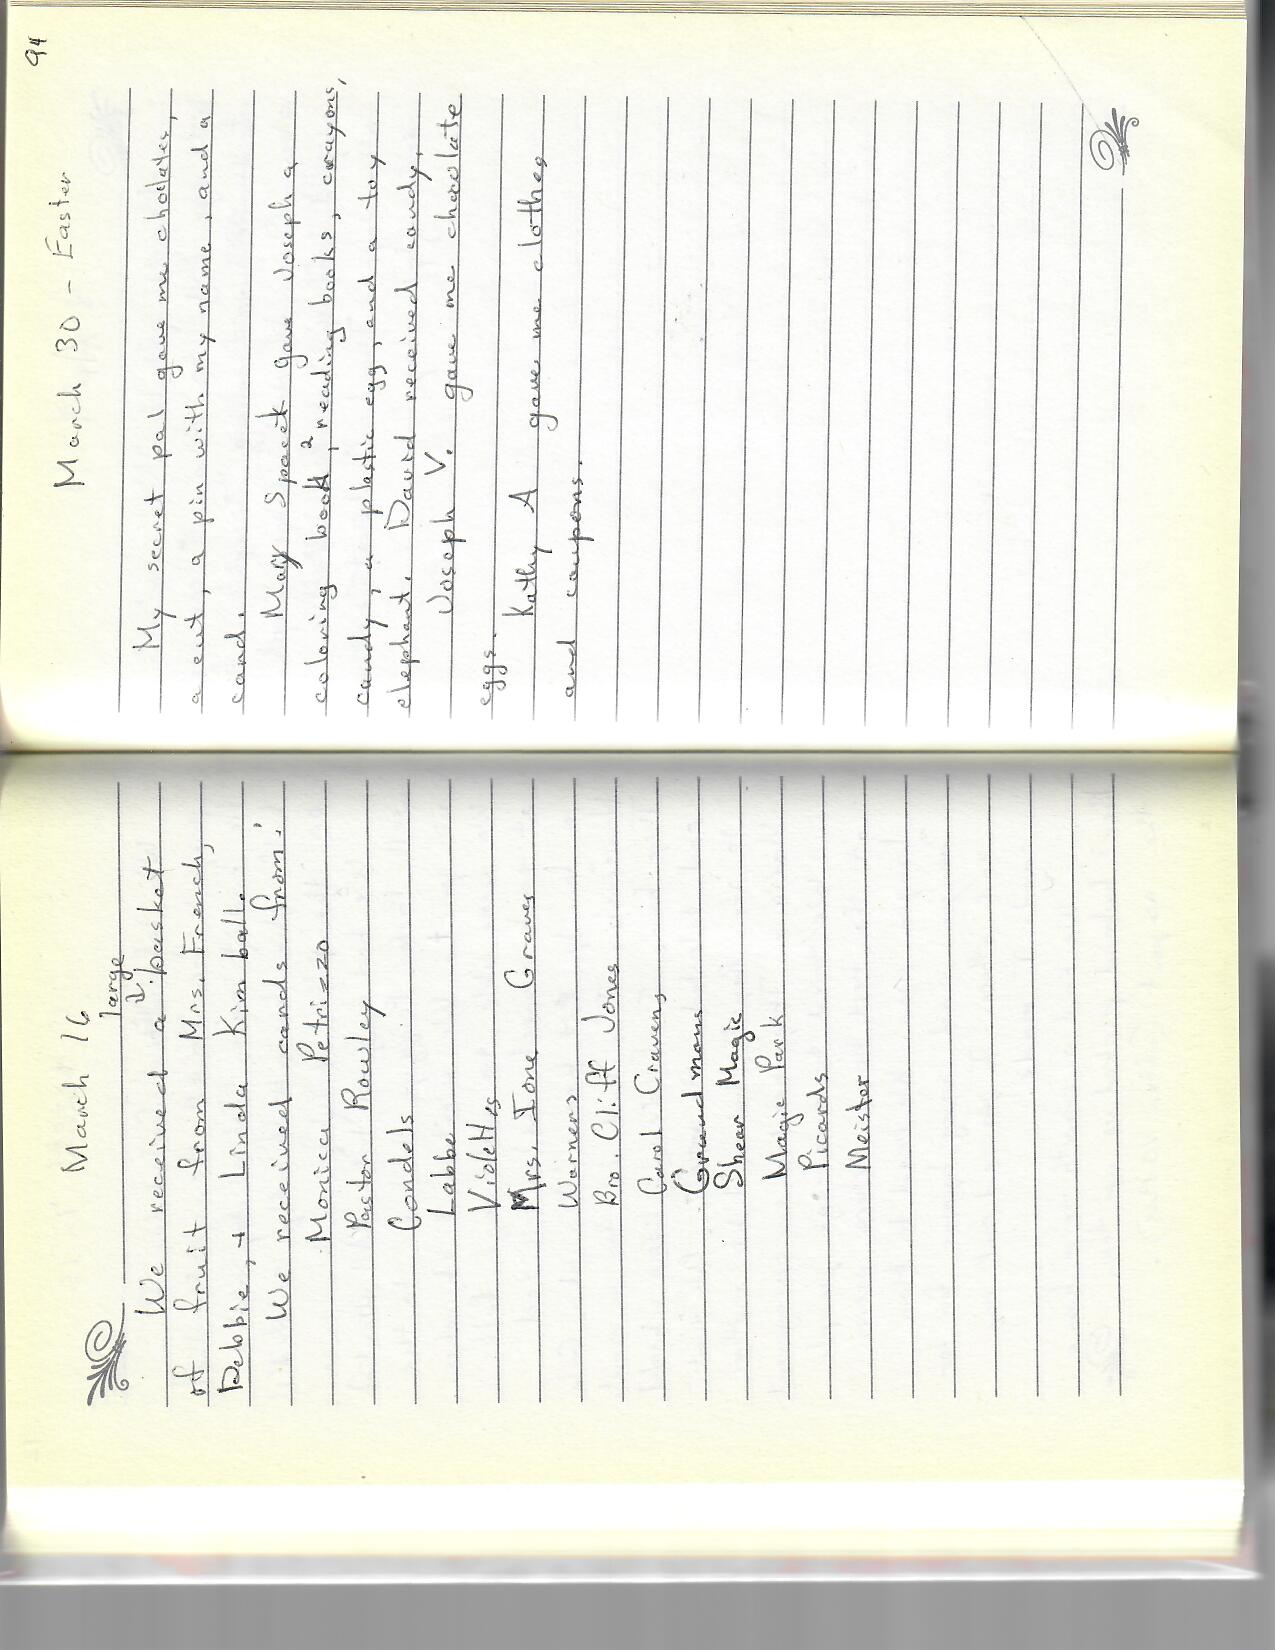 March 16
large
We received a basket
of fruit from Mrs. French,
Debbie, + Linda Kimball.
We received cards from:
Monica Petrizzo
Pastor Rowley
Condels
Labbe
Violettes
Mrs. Ione Graves
Warners
Bro. Cliff Jones
Carol Cravens
Grandmons
Shear Magic
Magic Park
Picards
Meister
94
March 30 - Easter
My secret pal gave me cholates,
a cut, a pin with my name, and a
card.
Mary Spacek gave Joseph a
coloring book, 2 reading books, crayons,
candy, a plastic egg, and a toy
elephant. David received candy.
Joseph V. gave me chocolate
eggs.
Kathy A gave me clothes
and coupons.